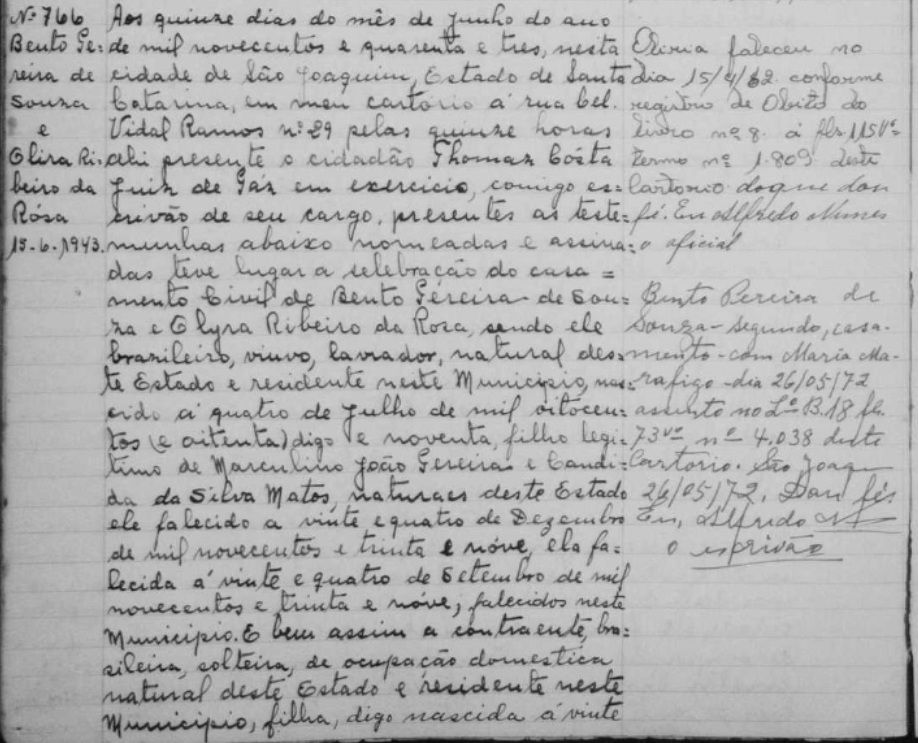 Nº 766
Bento Pe=
reira de
Souza
e
Olira Ri=
beiro da
Rósa
15-6-1943.
Aos quinze dias do mês de Junho do ano
de mil novecentos e quarenta e tres, nesta
cidade de São Joaquim, Estado de Santa
Catarina, em meu cartório á rua Cel.
Vidal Ramos nº 29 pelas quinze horas
ahi presente o cidadão Thomaz Cósta
Juiz de Páz em exercicio, comigo es=
crivão de seu cargo, presentes as teste=
munhas abaixo nomeadas e assina=
das teve lugar a selebração do casa=
mento Civil de Bento Pereira de Sou=
za e Olyra Ribeiro da Rosa, sendo ele
brazileiro, viuvo, lavrador, natural des=
te Estado e residente neste Municipio, nas=
cido á quatro de Julho de mil oitocen=
tos (e oitenta) digo e noventa, filho legi=
timo de Marculino João Pereira e Candi=
da da Silva Matos, naturaes deste Estado
ele falecido a vinte e quatro de Dezembro
de mil novecentos e trinta e nóve, ela fa=
lecida á vinte e quatro de Setembro de mil
novecentos e trinta e nóve, falecidos neste
Municipio. E bem assim a contraente, bra=
sileira, solteira, de ocupação domestica
natural deste Estado e residente neste
Municipio, filha, digo nascida á vinte
faleceu no
dia 15/4/62 conforme
registro de Obito do
livro nº 8. á fls. 115vº
termo nº 1.809 deste
Cartorio do que dou
fé. Eu Alfredo Nunes
o oficial
Bento Pereira de
Souza-segundo, casa-
mento-com Maria Ma-
rafigo-dia 26/05/72
assento no Lº B.18 fls.
73vº nº 4.038 deste
Cartorio. São Joaqu
26/05/72. Dou fés
Eu, Alfredo
o escrivão